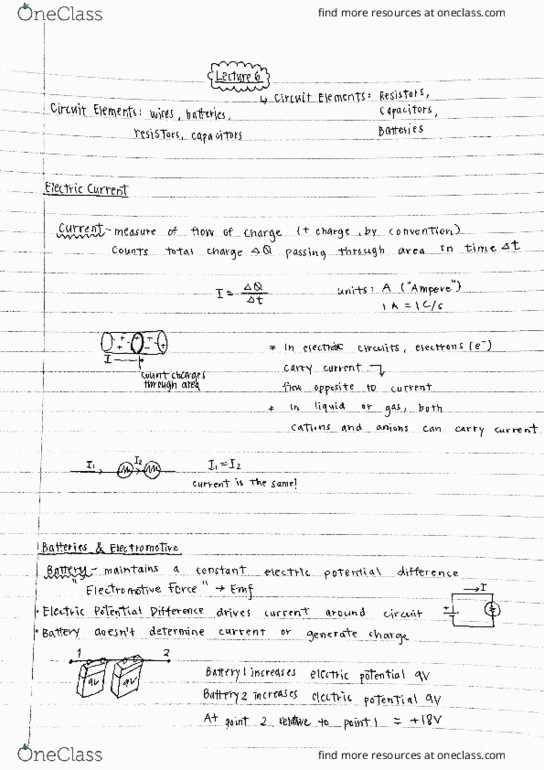 OneClass
find more resources at oneclass.com
Lecture 6
↳ Circuit Elements: Resistors,
Capacitors,
Batteries
Circuit Elements: wires, batteries,
resistors, capacitors
Electric Current
Current - measure of flow of charge (+ charge, by convention)
Counts total charge ΔQ passing through area in time Δt
I = ΔQ/Δt
units: A ("Ampere")
1 A = 1 C/s
I
count charges
through area
* In electric circuits, electrons (e⁻)
carry current
flow opposite to current
* in liquid or gas, both
cations and anions can carry current
I₁ I₂
I₁ = I₂
current is the same!
Batteries & Electromotive
Battery - maintains a constant electric potential difference
"Electromotive Force" → Emf
→ I
+
• Electric Potential Difference drives current around circuit
• Battery doesn't determine current or generate charge
1 2
9V 9V
Battery 1 increases electric potential 9V
Battery 2 increases electric potential 9V
At point 2 relative to point 1 = +18V
OneClass
find more resources at oneclass.com